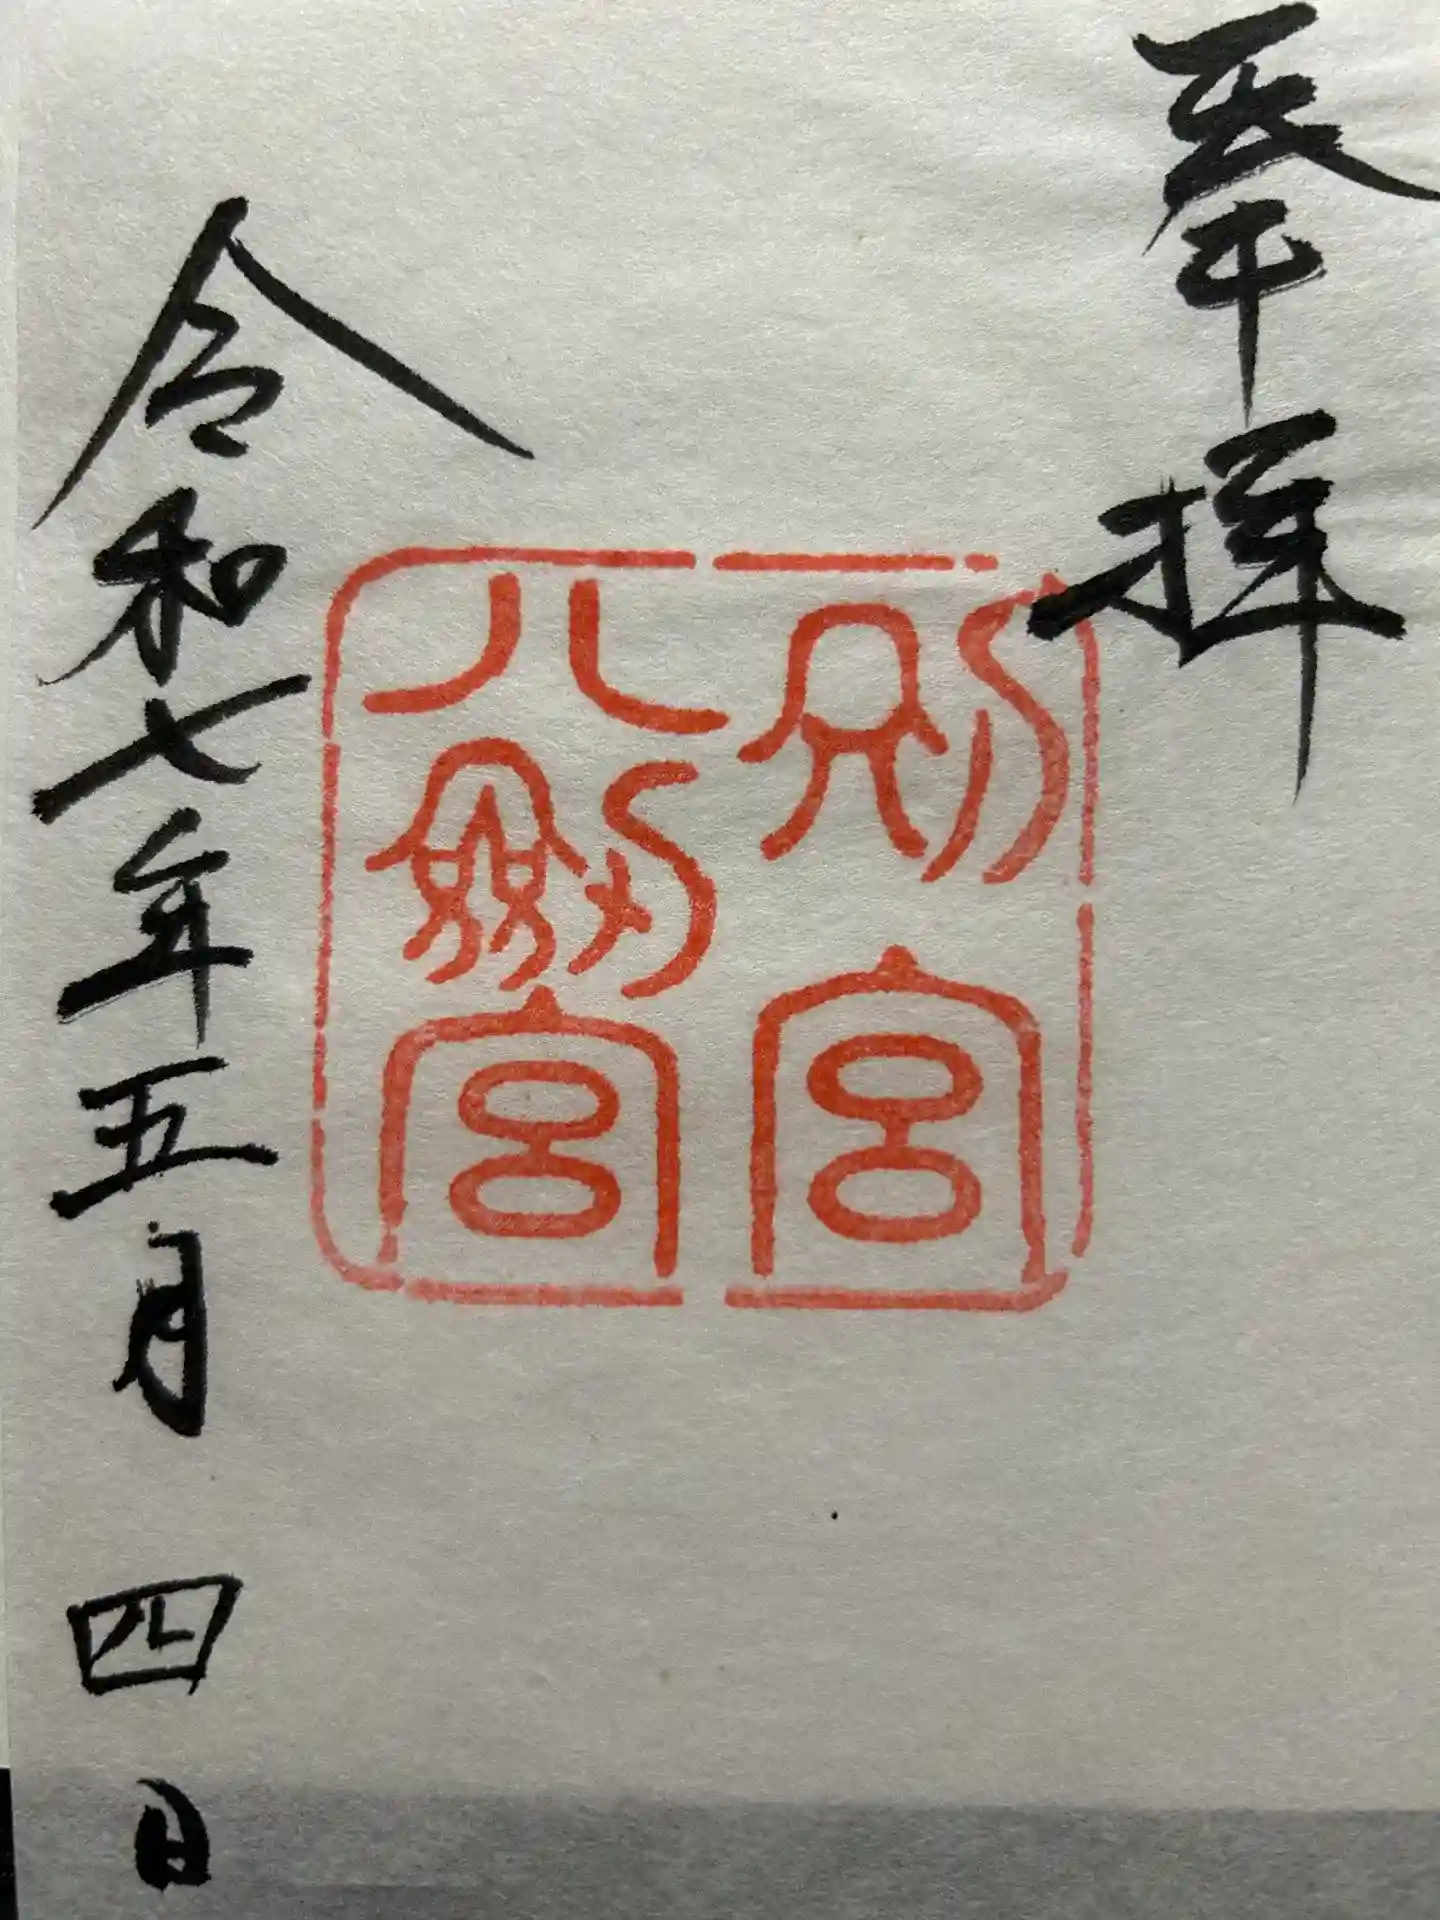 奉拝
別宮
八剣宮
令和七年五月四日